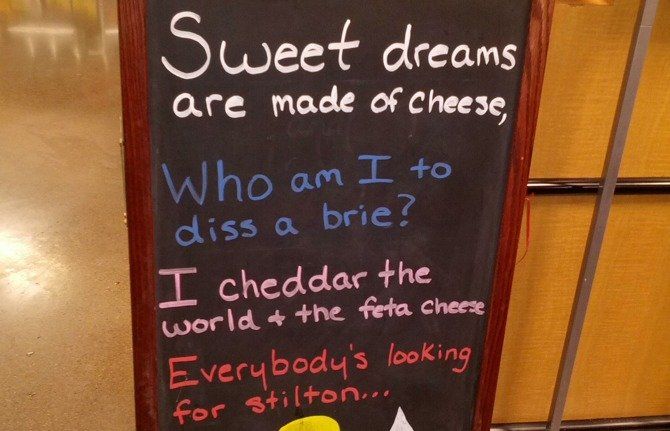 Sweet dreams
are made of cheese,
Who am I to
diss a brie?
I cheddar the
world + the feta cheese
Everybody's looking
for stilton...